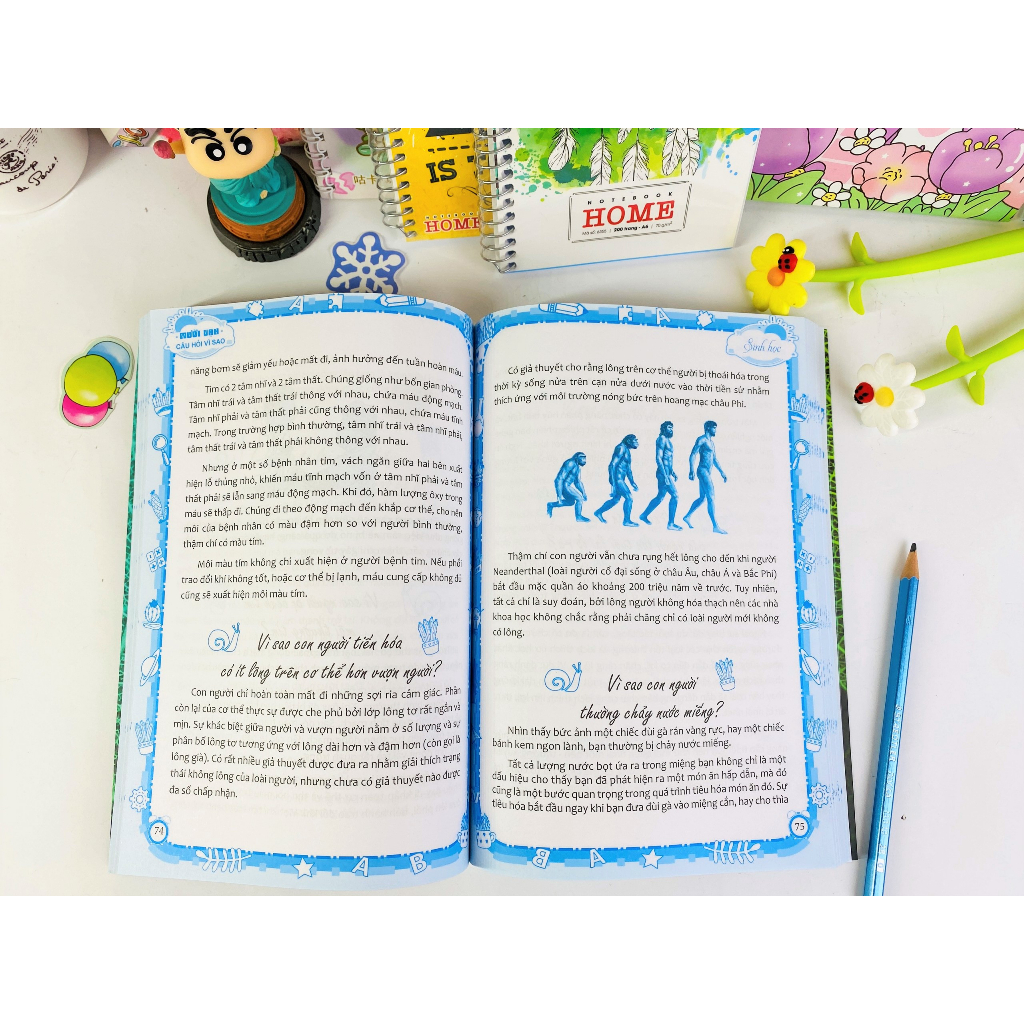 IS
NOTEBOOK
HOME
NOTEBOOK
HOME
200 trang - A6
MƯỜI VẠN
CÂU HỎI VÌ SAO
năng bơm sẽ giảm yếu hoặc mất đi, ảnh hưởng đến tuần hoàn máu.
Tim có 2 tâm nhĩ và 2 tâm thất. Chúng giống như bốn gian phòng.
Tâm nhĩ trái và tâm thất trái thông với nhau, chứa máu động mạch.
Tâm nhĩ phải và tâm thất phải cũng thông với nhau, chứa máu tĩnh
mạch. Trong trường hợp bình thường, tâm nhĩ trái và tâm nhĩ phải,
tâm thất trái và tâm thất phải không thông với nhau.
Nhưng ở một số bệnh nhân tim, vách ngăn giữa hai bên xuất
hiện lỗ thủng nhỏ, khiến máu tĩnh mạch vốn ở tâm nhĩ phải và tâm
thất phải sẽ lẫn sang máu động mạch. Khi đó, hàm lượng ôxy trong
máu sẽ thấp đi. Chúng đi theo động mạch đến khắp cơ thể, cho nên
môi của bệnh nhân có màu đậm hơn so với người bình thường,
thậm chí có màu tím.
Môi màu tím không chỉ xuất hiện ở người bệnh tim. Nếu phổi
trao đổi khí không tốt, hoặc cơ thể bị lạnh, máu cung cấp không đủ
cũng sẽ xuất hiện môi màu tím.
Vì sao con người tiến hóa
có ít lông trên cơ thể hơn vượn người?
Con người chỉ hoàn toàn mất đi những sợi ria cảm giác. Phần
còn lại của cơ thể thực sự được che phủ bởi lớp lông tơ rất ngắn và
mịn. Sự khác biệt giữa người và vượn người nằm ở số lượng và sự
phân bố lông tơ tương ứng với lông dài hơn và đậm hơn (còn gọi là
lông già). Có rất nhiều giả thuyết được đưa ra nhằm giải thích trạng
thái không lông của loài người, nhưng chưa có giả thuyết nào được
đa số chấp nhận.
74
A B
Sinh học
Có giả thuyết cho rằng lông trên cơ thể người bị thoái hóa trong
thời kỳ sống nửa trên cạn nửa dưới nước vào thời tiền sử nhằm
thích ứng với môi trường nóng bức trên hoang mạc châu Phi.
Thậm chí con người vẫn chưa rụng hết lông cho đến khi người
Neanderthal (loài người cổ đại sống ở châu Âu, châu Á và Bắc Phi)
bắt đầu mặc quần áo khoảng 200 triệu năm về trước. Tuy nhiên,
tất cả chỉ là suy đoán, bởi lông người không hóa thạch nên các nhà
khoa học không chắc rằng phải chăng chỉ có loài người mới không
có lông.
Vì sao con người
thường chảy nước miếng?
Nhìn thấy bức ảnh một chiếc đùi gà rán vàng rực, hay một chiếc
bánh kem ngon lành, bạn thường bị chảy nước miếng.
Tất cả lượng nước bọt ứa ra trong miệng bạn không chỉ là một
dấu hiệu cho thấy bạn đã phát hiện ra một món ăn hấp dẫn, mà đó
cũng là một bước quan trọng trong quá trình tiêu hóa món ăn đó. Sự
tiêu hóa bắt đầu ngay khi bạn đưa đùi gà vào miệng cắn, hay cho thìa
75